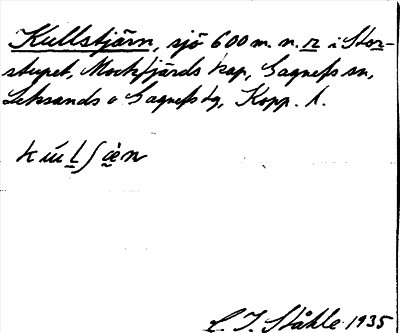 Kullstjärn, sjö 600 m. n. n i Stor-
stupet, Mockfjärds kap, Gagnefs sn,
Leksands o Gagnefs tg, Kopp. l.
C. I. Ståhle 1935